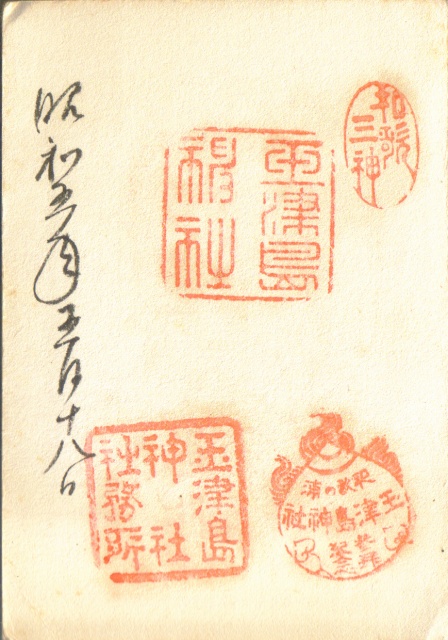 和歌
三神
玉津島
神社
玉津島
神社
社務所
和歌の浦
玉津島
神社
参拝
昭和
月
十八日